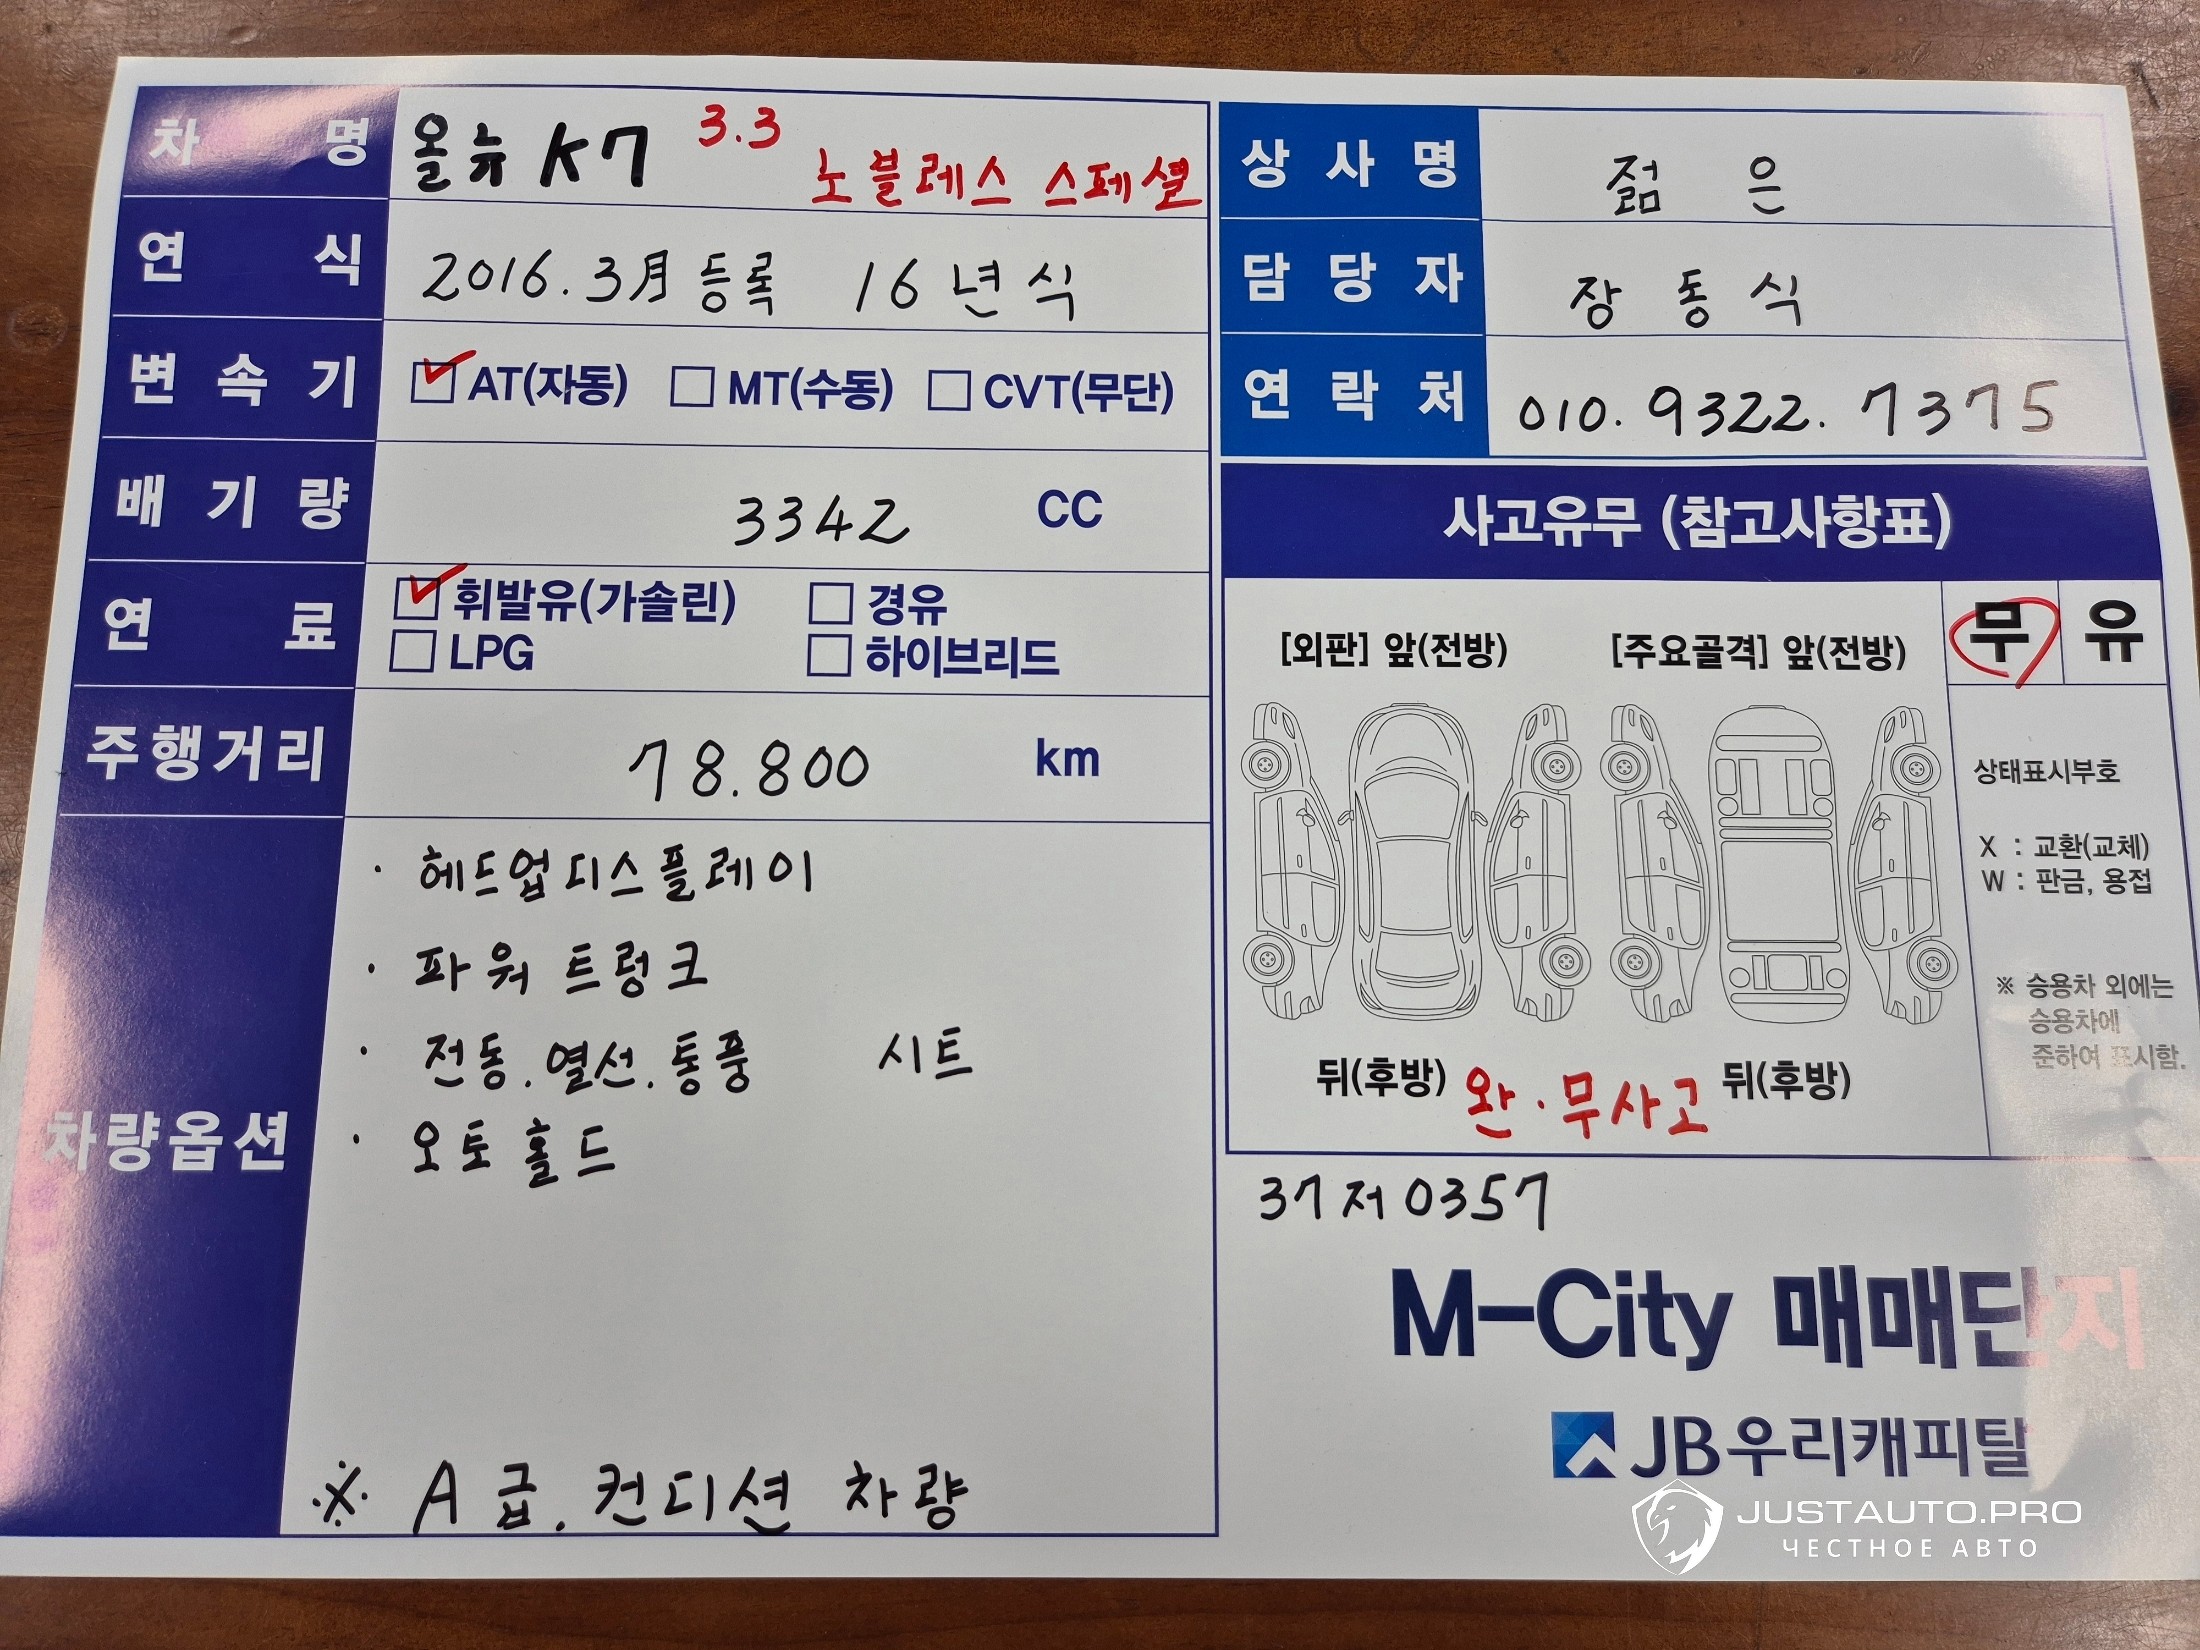 차 명 올뉴 K7 3.3 노블레스 스페셜
연 식 2016.3月 등록 16년식
변 속 기 AT(자동) MT(수동) CVT(무단)
배 기 량 3342 CC
연 료 휘발유(가솔린) 경유
LPG 하이브리드
주행거리 78.800 km
차량옵션
· 헤드업디스플레이
· 파워 트렁크
· 전동.열선.통풍 시트
· 오토 홀드
※ A급.컨디션 차량
상 사 명 젊 은
담 당 자 장 동 식
연 락 처 010.9322.7375
사고유무 (참고사항표)
무 유
[외판] 앞(전방) [주요골격] 앞(전방)
상태표시부호
X : 교환(교체)
W : 판금, 용접
※ 승용차 외에는
승용차에
준하여 표시함.
뒤(후방) 완·무사고 뒤(후방)
37저0357
M-City 매매단지
JB우리캐피탈
JUSTAUTO.PRO
ЧЕСТНОЕ АВТО